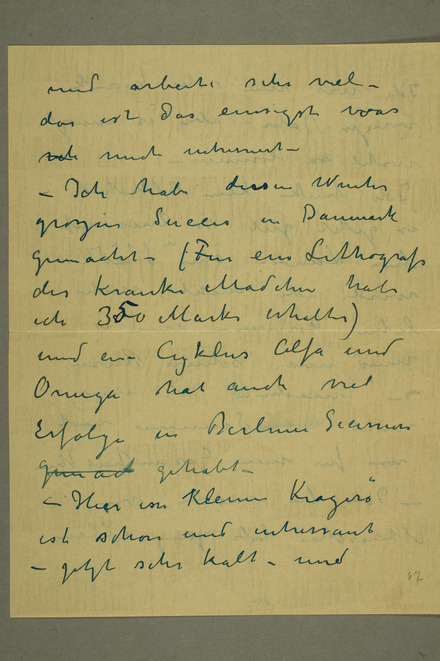 und arbeite sehr viel –
das ist das einsigste was
mich interessiert –
– Ich habe diesen Winter
grozsen Succes in Danmark
gemacht – (Fur ein Lithografi
des Kranke Madchen habe
ich 350 Marks erhalten)
und ein Cyklus Alfa und
Omega hat auch viel
Erfolge in Berliner Secession
gemact gehabt –
– Hier im kleinen Kragerö
ist schon und interessant
– jetzt sehr kalt – und
67